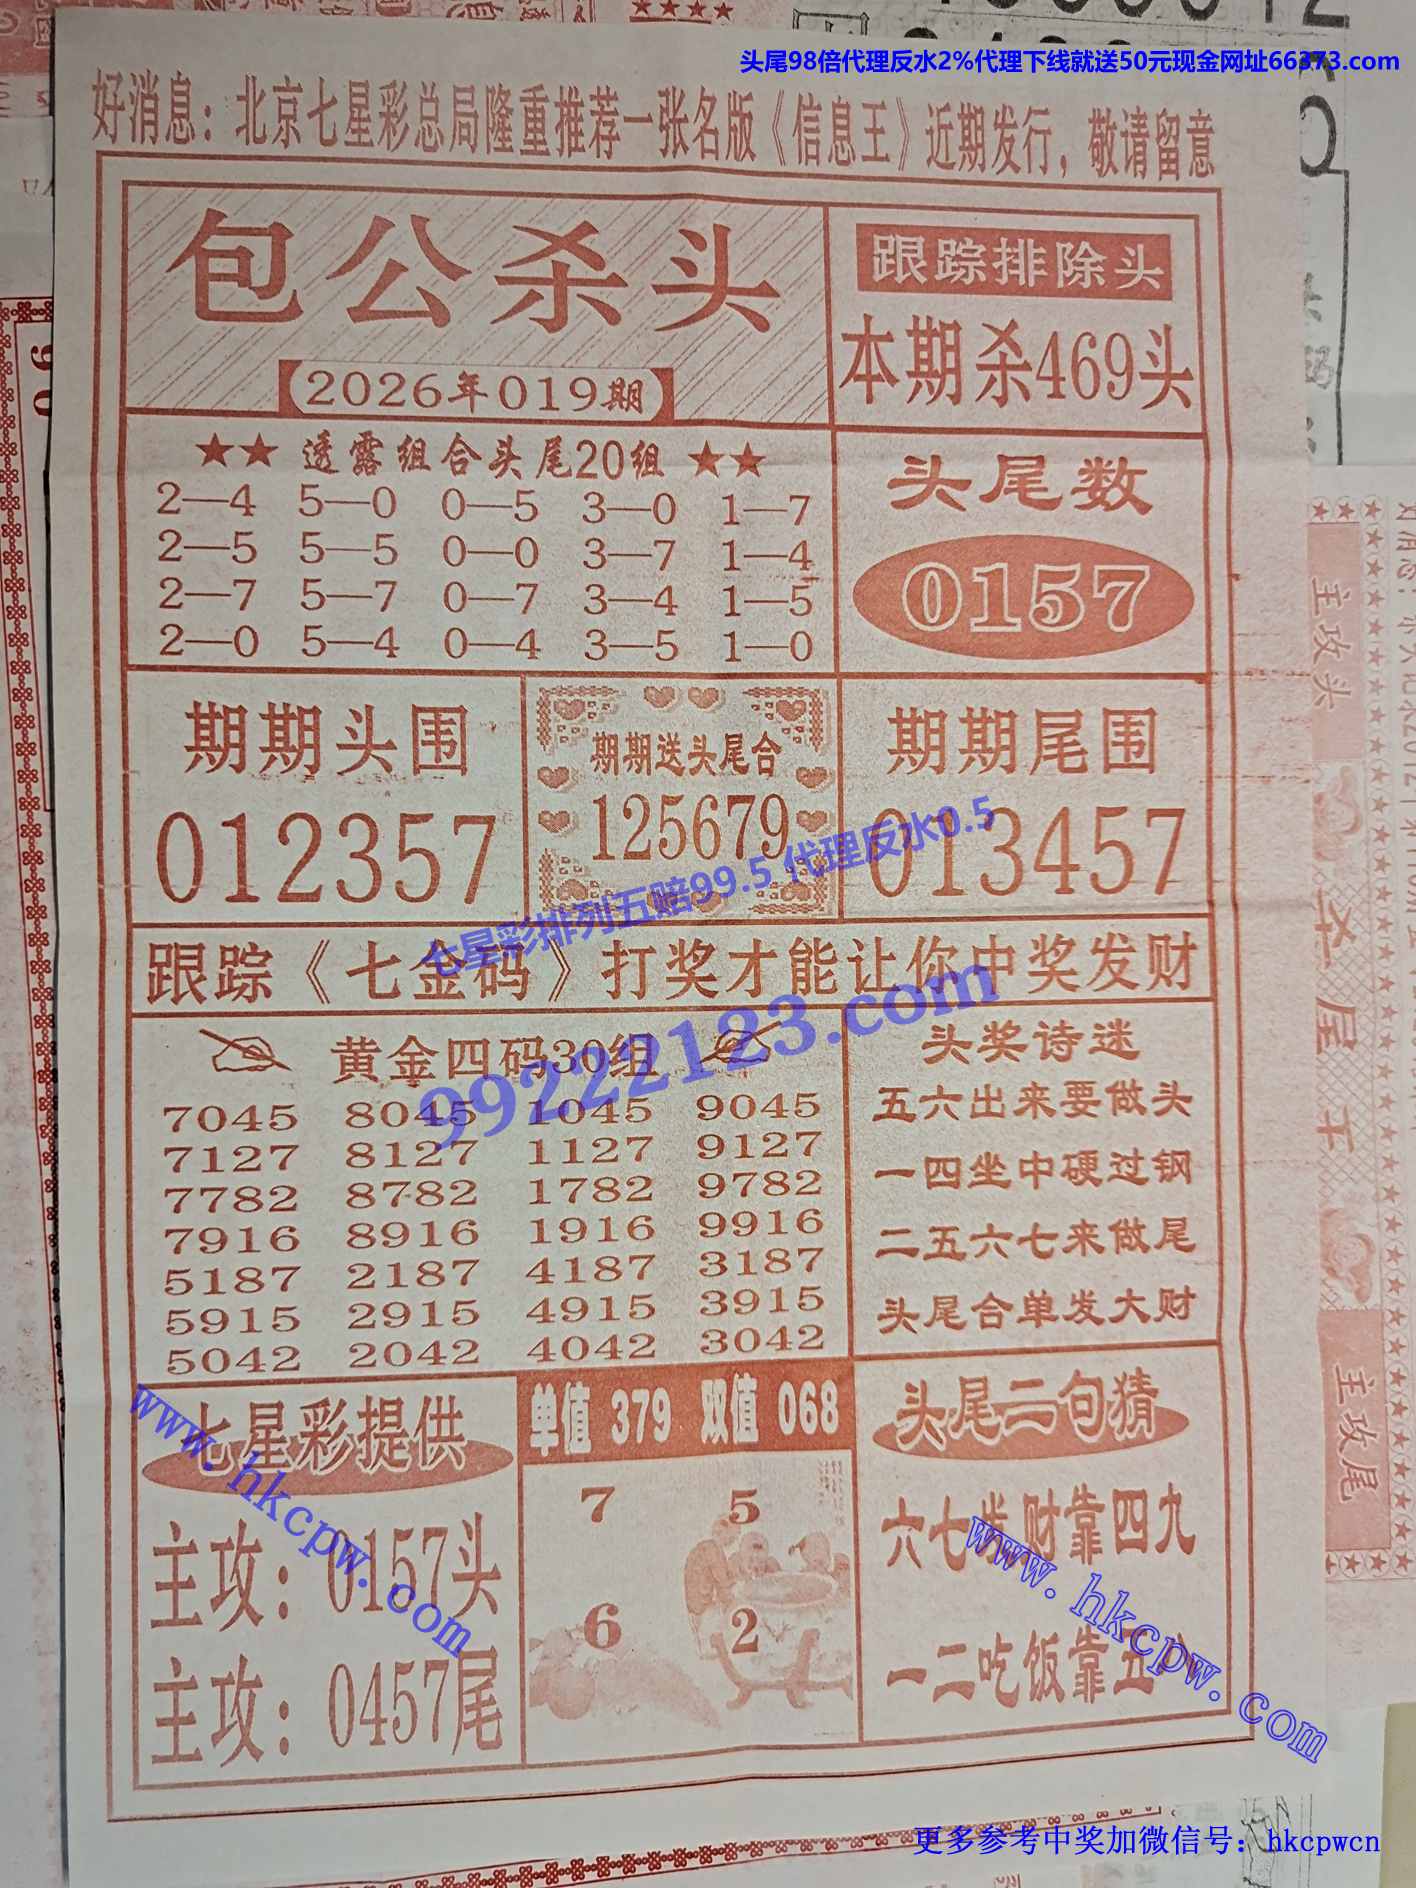 头尾98倍代理反水2%代理下线就送50元现金网址66373.com
好消息：北京七星彩总局隆重推荐一张名版《信息王》近期发行，敬请留意
包公杀头
【2026年019期】
跟踪排除头
本期杀469头
★★ 透露组合头尾20组 ★★
2—4 5—0 0—5 3—0 1—7
2—5 5—5 0—0 3—7 1—4
2—7 5—7 0—7 3—4 1—5
2—0 5—4 0—4 3—5 1—0
头尾数
0157
期期头围
012357
期期送头尾合
125679
期期尾围
013457
七星彩排列五赔99.5 代理反水0.5
跟踪《七金码》打奖才能让你中奖发财
99222123.com
黄金四码30组
7045 8045 1045 9045
7127 8127 1127 9127
7782 8782 1782 9782
7916 8916 1916 9916
5187 2187 4187 3187
5915 2915 4915 3915
5042 2042 4042 3042
头奖诗迷
五六出来要做头
一四坐中硬过钢
二五六七来做尾
头尾合单发大财
七星彩提供
主攻：0157头
主攻：0457尾
www.hkcpw.com
单值 379 双值 068
7 5
6 2
头尾二句猜
六七发财靠四九
一二吃饭靠五八
www.hkcpw.com
主攻头
主攻尾
更多参考中奖加微信号：hkcpwcn